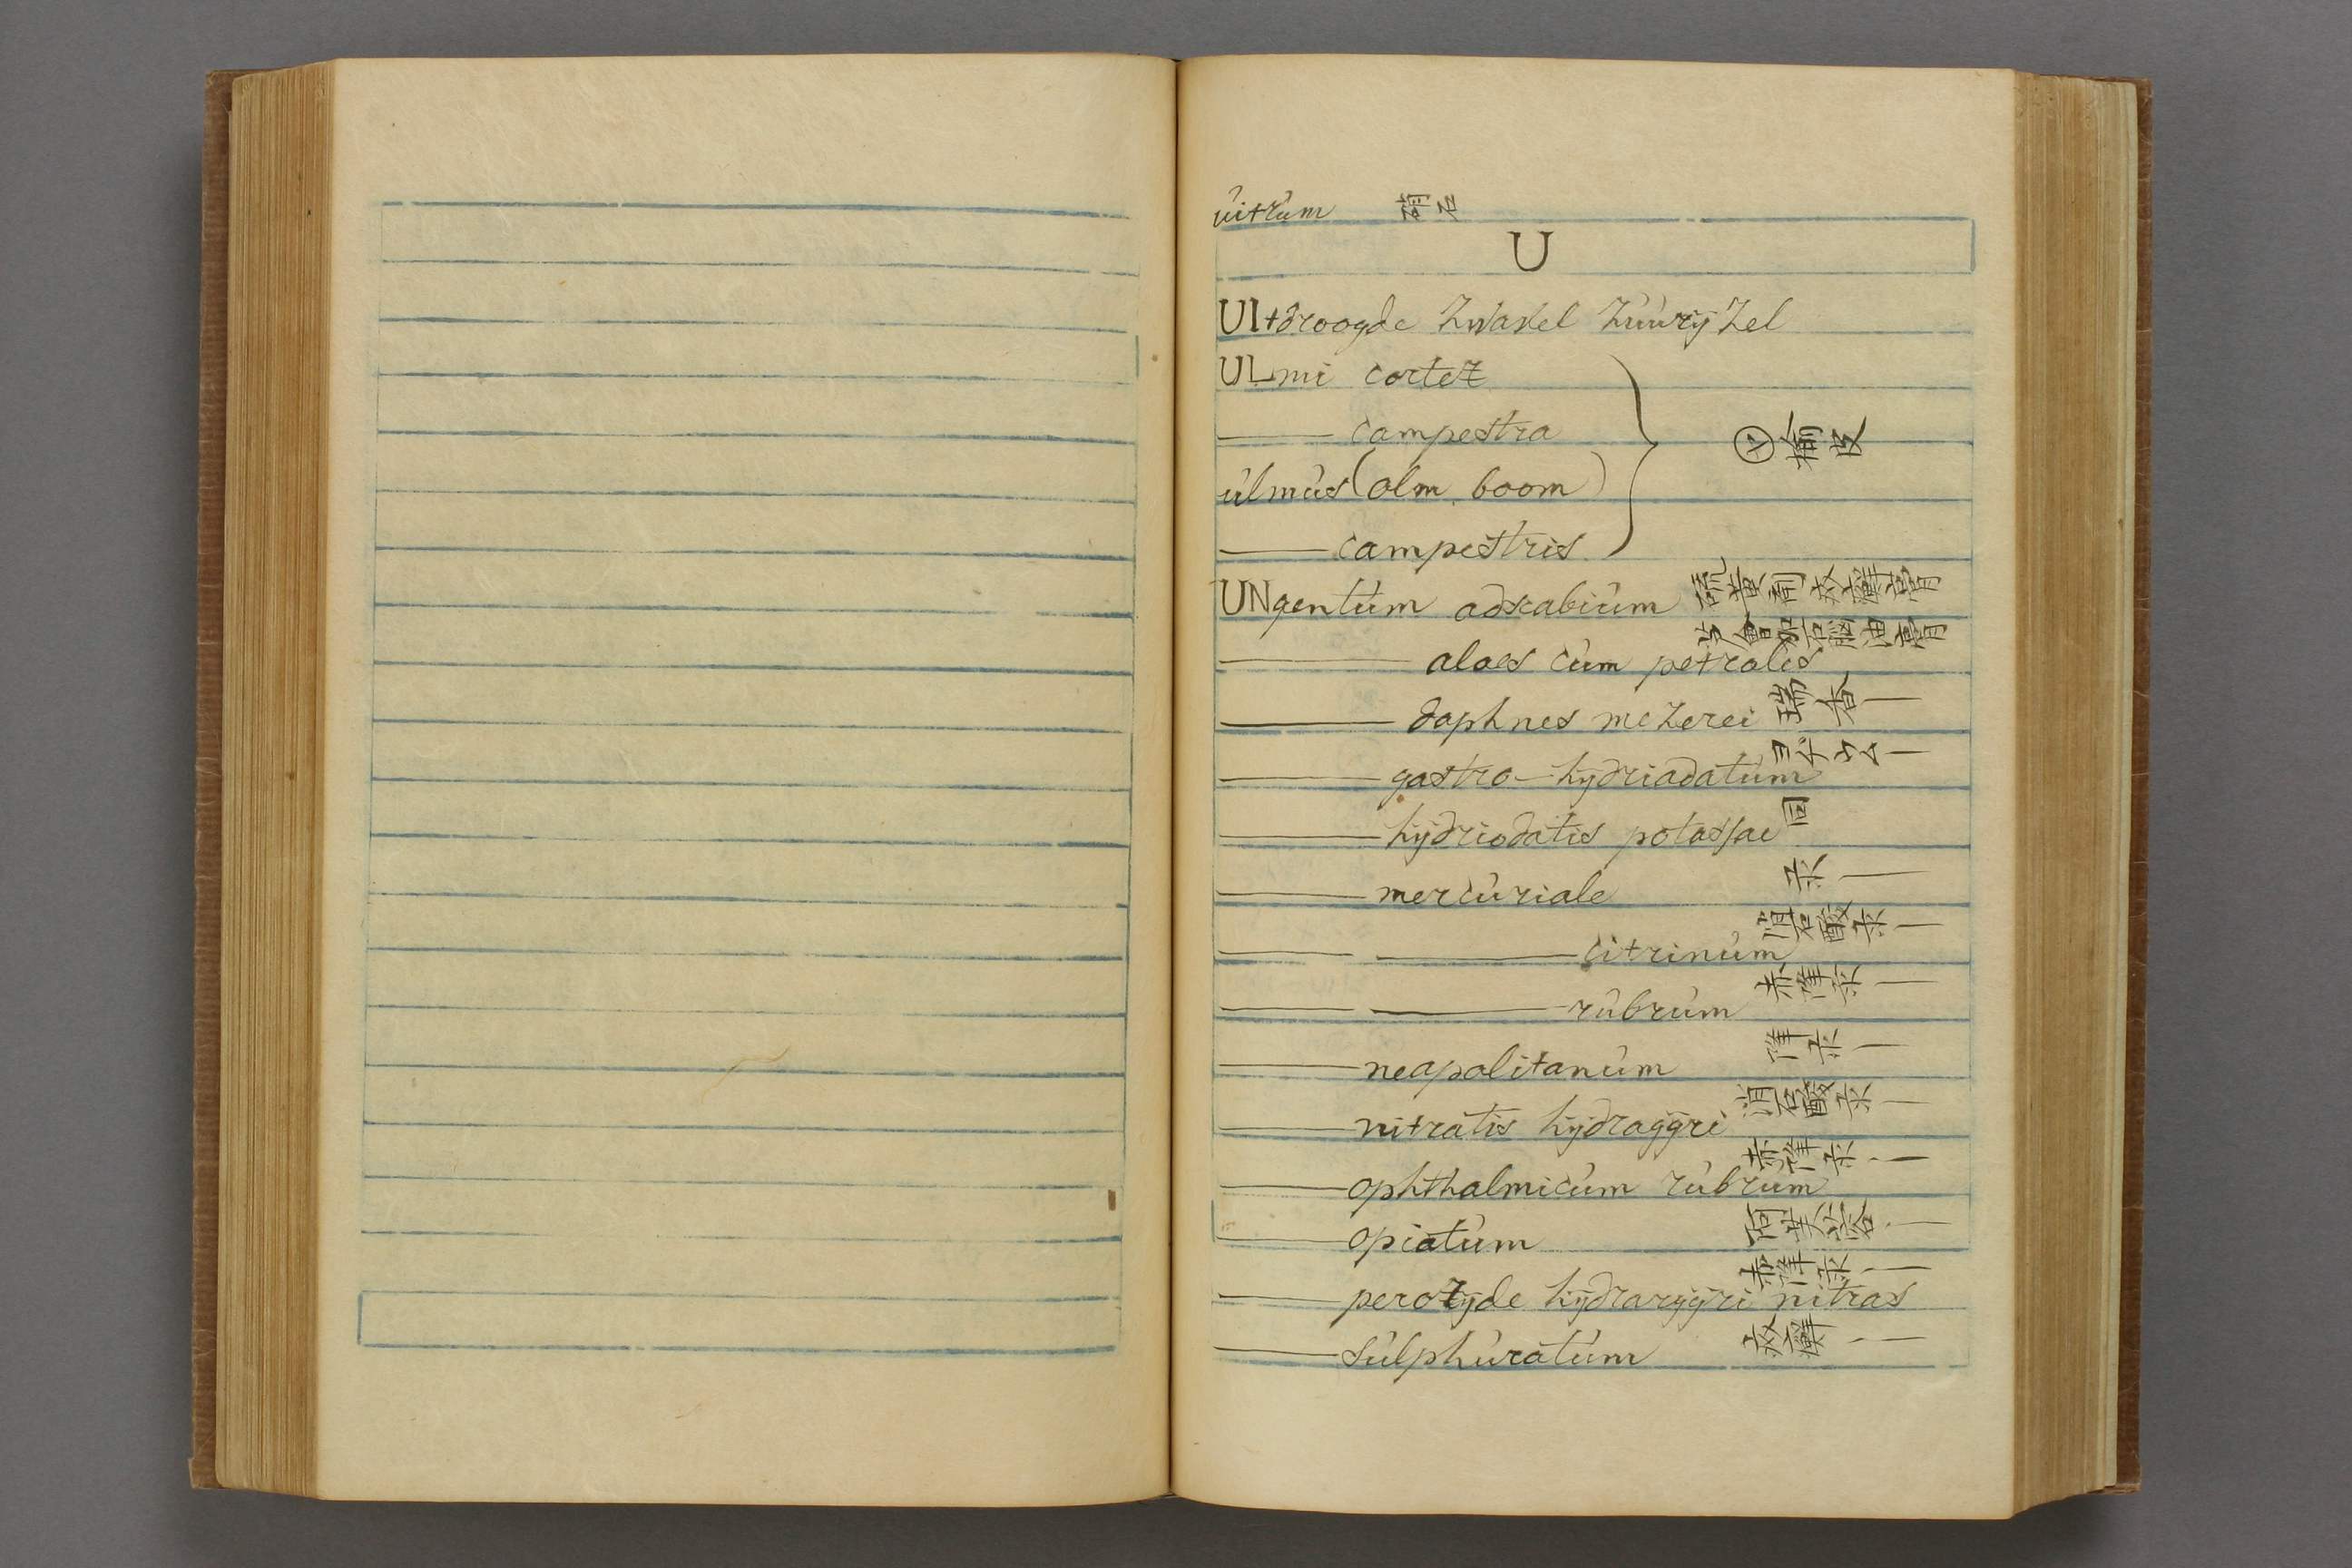 vitrum 硝石
U
UItdroogde Zwavel Zuurij Zel
ULmi cortex
—— campestra
ulmus (olm boom)
㋑ 楡皮
—— campestris
UNgentum adscabium 硫黄剤 疥癬膏
—— aloes cum petroles 芦會加石脳油膏
—— daphnes mezerei 瑞香—
—— gastro-hydriadatum ヨヂウム—
—— hydriodatis potassae 同
—— mercuriale 汞—
—— —— citrinum 消石酸汞—
—— —— rubrum 赤降汞—
—— neapolitanum 降汞—
—— nitratis hydragyri 消石酸汞—
—— ophthalmicum rubrum 赤降汞—
—— opiatum 阿芙蓉—
—— peroxyde hydrargyri nitras 赤降汞—
—— sulphuratum 疥癬—